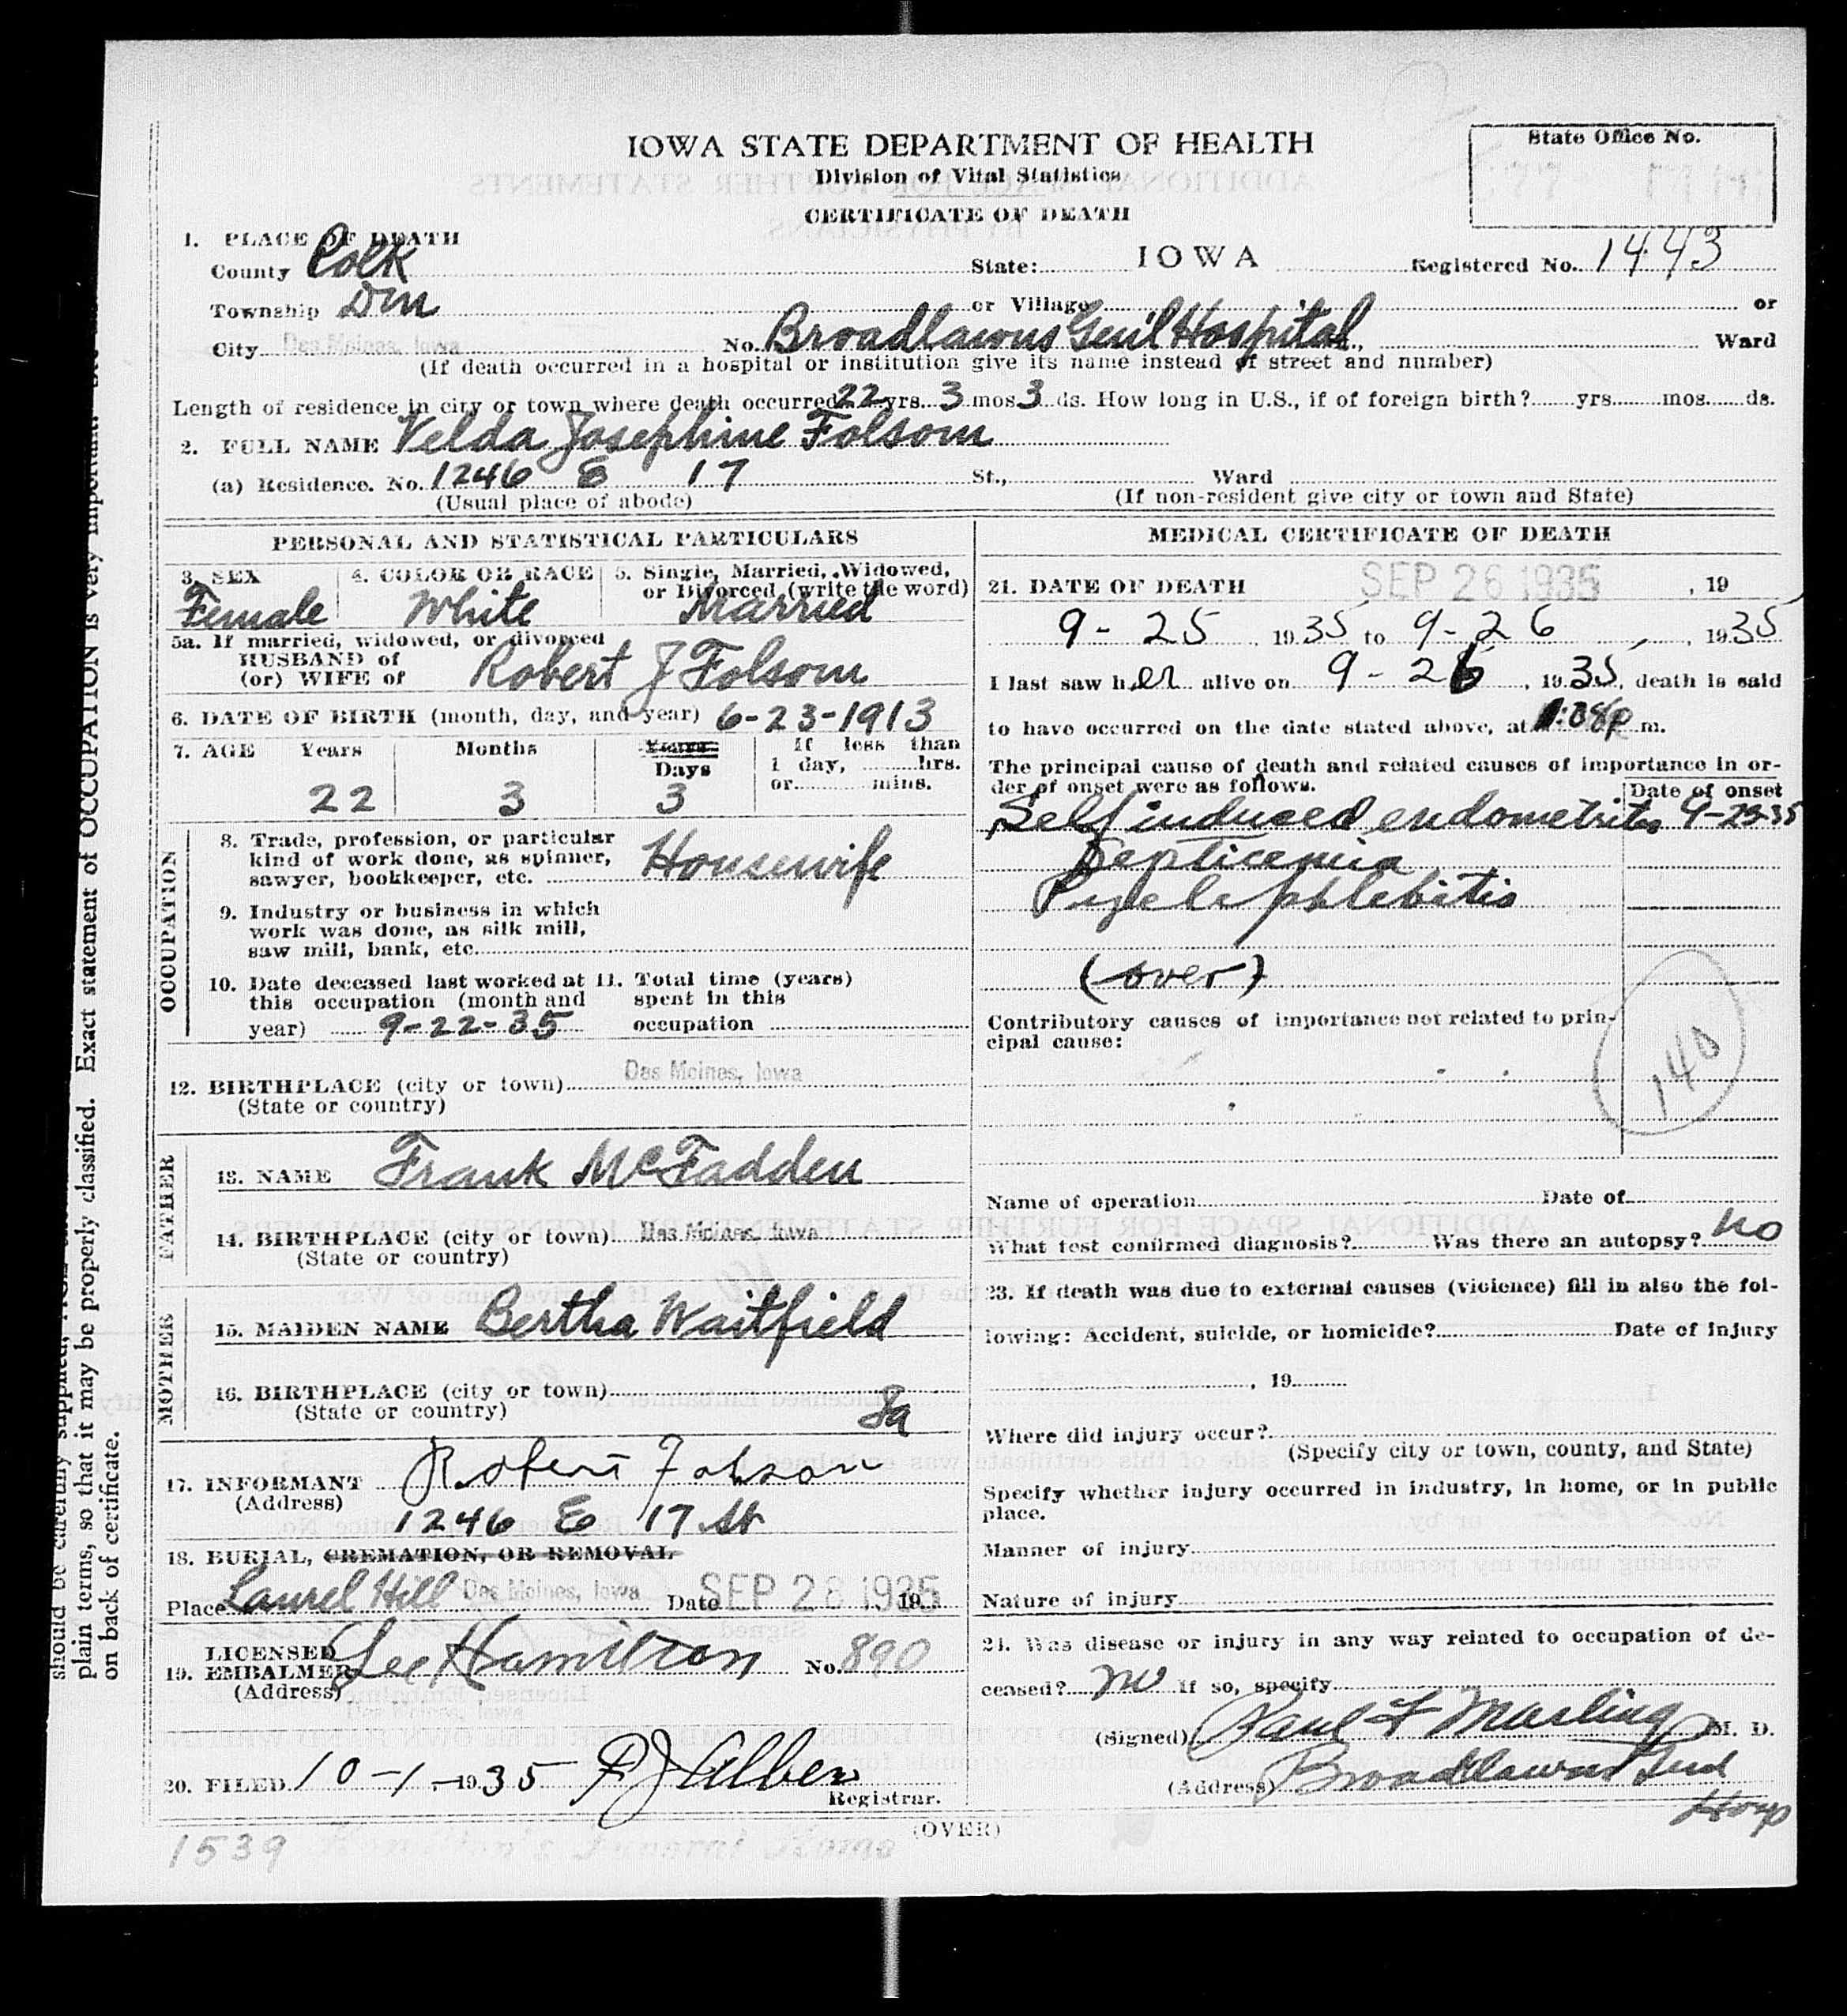 IOWA STATE DEPARTMENT OF HEALTH
Division of Vital Statistics
CERTIFICATE OF DEATH
State Office No.
1. PLACE OF DEATH
County Polk State: IOWA Registered No. 1443
Township Dm or Village or
City Des Moines, Iowa No. Broadlawns Gen'l Hospital, Ward
(If death occurred in a hospital or institution give its name instead of street and number)
Length of residence in city or town where death occurred 22 yrs. 3 mos 3 ds. How long in U.S., if of foreign birth? yrs. mos. ds.
2. FULL NAME Velda Josephine Folsom
(a) Residence. No. 1246 E 17 St., Ward
(Usual place of abode) (If non-resident give city or town and State)
PERSONAL AND STATISTICAL PARTICULARS
3. SEX 4. COLOR OR RACE 5. Single, Married, Widowed,
or Divorced (write the word)
Female White Married
5a. If married, widowed, or divorced
HUSBAND of
(or) WIFE of Robert J Folsom
6. DATE OF BIRTH (month, day, and year) 6-23-1913
7. AGE Years Months Years Days If less than
1 day, hrs.
or mins.
22 3 3
OCCUPATION
8. Trade, profession, or particular
kind of work done, as spinner,
sawyer, bookkeeper, etc. Housewife
9. Industry or business in which
work was done, as silk mill,
saw mill, bank, etc.
10. Date deceased last worked at
this occupation (month and
year) 9-22-35
11. Total time (years)
spent in this
occupation
12. BIRTHPLACE (city or town) Des Moines, Iowa
(State or country)
FATHER
13. NAME Frank McFadden
14. BIRTHPLACE (city or town) Des Moines, Iowa
(State or country)
MOTHER
15. MAIDEN NAME Bertha Waitfield
16. BIRTHPLACE (city or town)
(State or country) Ia
17. INFORMANT Robert Folsom
(Address) 1246 E 17 St
18. BURIAL, CREMATION, OR REMOVAL
Place Laurel Hill Des Moines, Iowa Date SEP 28 1935 19
19. LICENSED EMBALMER Lee Hamilton No. 890
(Address) Des Moines, Iowa
20. FILED 10-1-1935 Registrar.
MEDICAL CERTIFICATE OF DEATH
21. DATE OF DEATH SEP 26 1935, 19
9-25, 1935 to 9-26, 1935
I last saw her alive on 9-26, 1935, death is said
to have occurred on the date stated above, at 1:08 p m.
The principal cause of death and related causes of importance in or-
der of onset were as follows. Date of onset
Self induced endometritis 9-23-35
Septicemia
Pyelephlebitis
(over)
Contributory causes of importance not related to prin-
cipal cause:
140
Name of operation Date of
What test confirmed diagnosis? Was there an autopsy? no
23. If death was due to external causes (violence) fill in also the fol-
lowing: Accident, suicide, or homicide? Date of injury
, 19
Where did injury occur?
(Specify city or town, county, and State)
Specify whether injury occurred in industry, in home, or in public
place.
Manner of injury
Nature of injury
24. Was disease or injury in any way related to occupation of de-
ceased? no If so, specify
(Signed) Paul F Marling M. D.
(Address) Broadlawns Gend
Hosp
(OVER)
1539 Hamilton's Funeral Home
should be carefully supplied,
plain terms, so that it may be properly classified. Exact statement of OCCUPATION is very important.
on back of certificate.